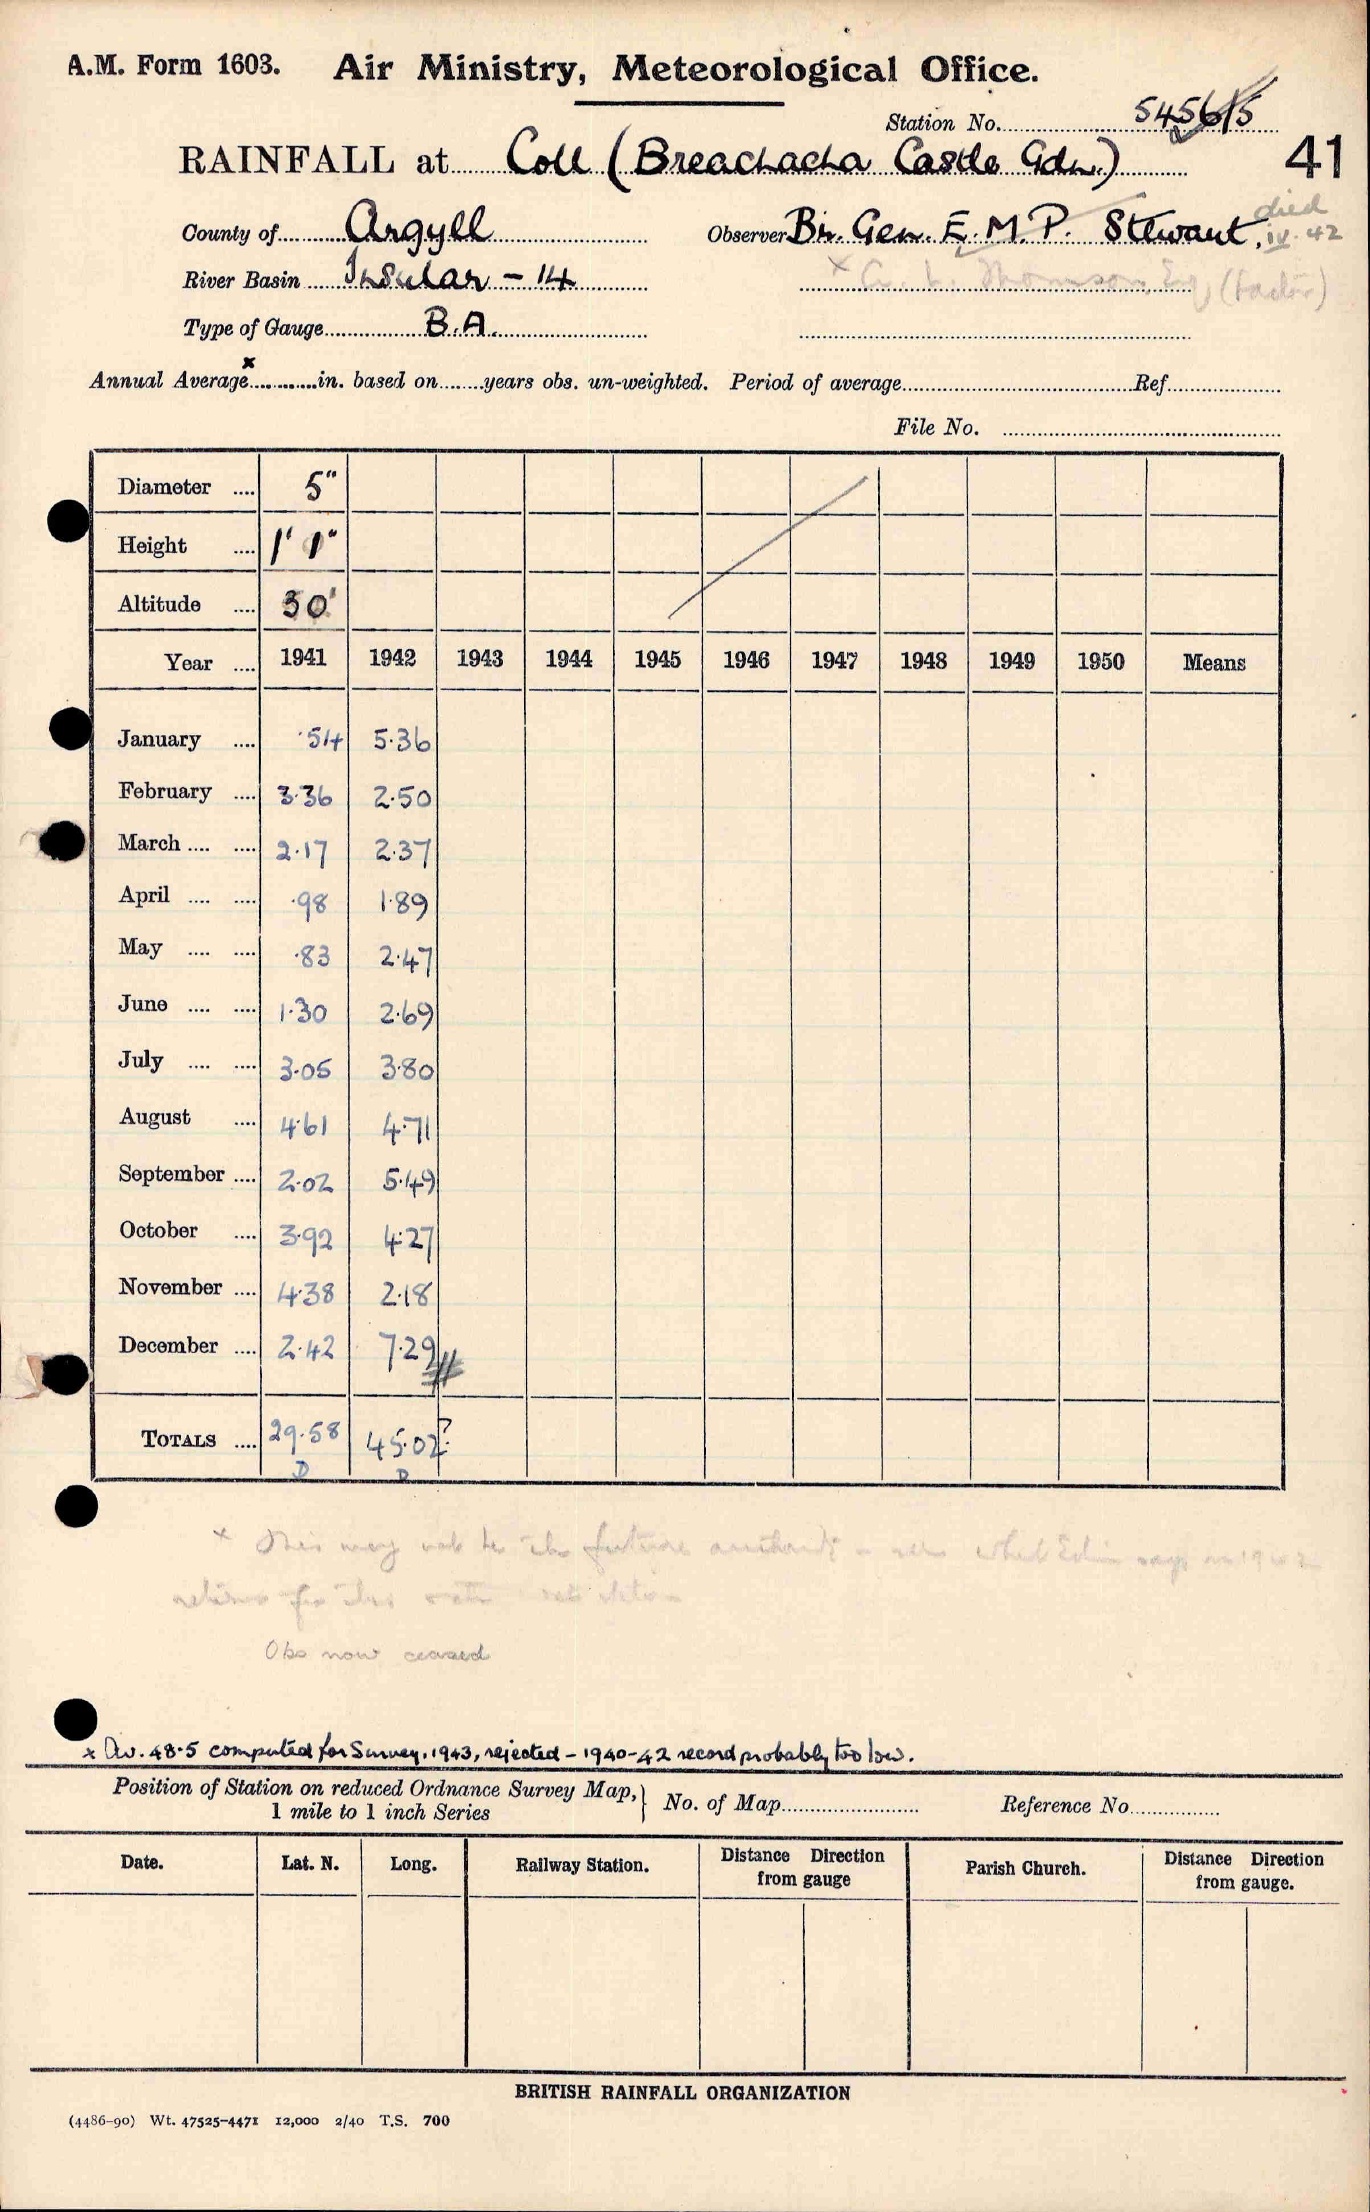 A.M. Form 1603. Air Ministry, Meteorological Office.
Station No. 5456/5
41
RAINFALL at Coll (Breachacha Castle Gdn.)
County of Argyll Observer Br. Gen. E. M. P. Stewart, died IV. 42
River Basin Insular - 14 x Thomson, Esq (factor)
Type of Gauge B.A.
Annual Average x in. based on years obs. un-weighted. Period of average Ref
File No.
Diameter 5"
Height 1' 1"
Altitude 30'
Year 1941 1942 1943 1944 1945 1946 1947 1948 1949 1950 Means
January ·54 5·36
February 3·36 2·50
March 2·17 2·37
April ·98 1·89
May ·83 2·47
June 1·30 2·69
July 3·05 3·80
August 4·61 4·71
September 2·02 5·49
October 3·92 4·27
November 4·38 2·18
December 2·42 7·29
TOTALS 29·58 45·02?
D D
x This may not be the future - what says 1942
for this
Obs now ceased
x Av. 48·5 computed for Survey, 1943, rejected - 1940-42 record probably too low.
Position of Station on reduced Ordnance Survey Map, 1 mile to 1 inch Series } No. of Map Reference No.
Date. Lat. N. Long. Railway Station. Distance Direction from gauge Parish Church. Distance Direction from gauge.
BRITISH RAINFALL ORGANIZATION
(4486-90) Wt. 47525-4471 12,000 2/40 T.S. 700